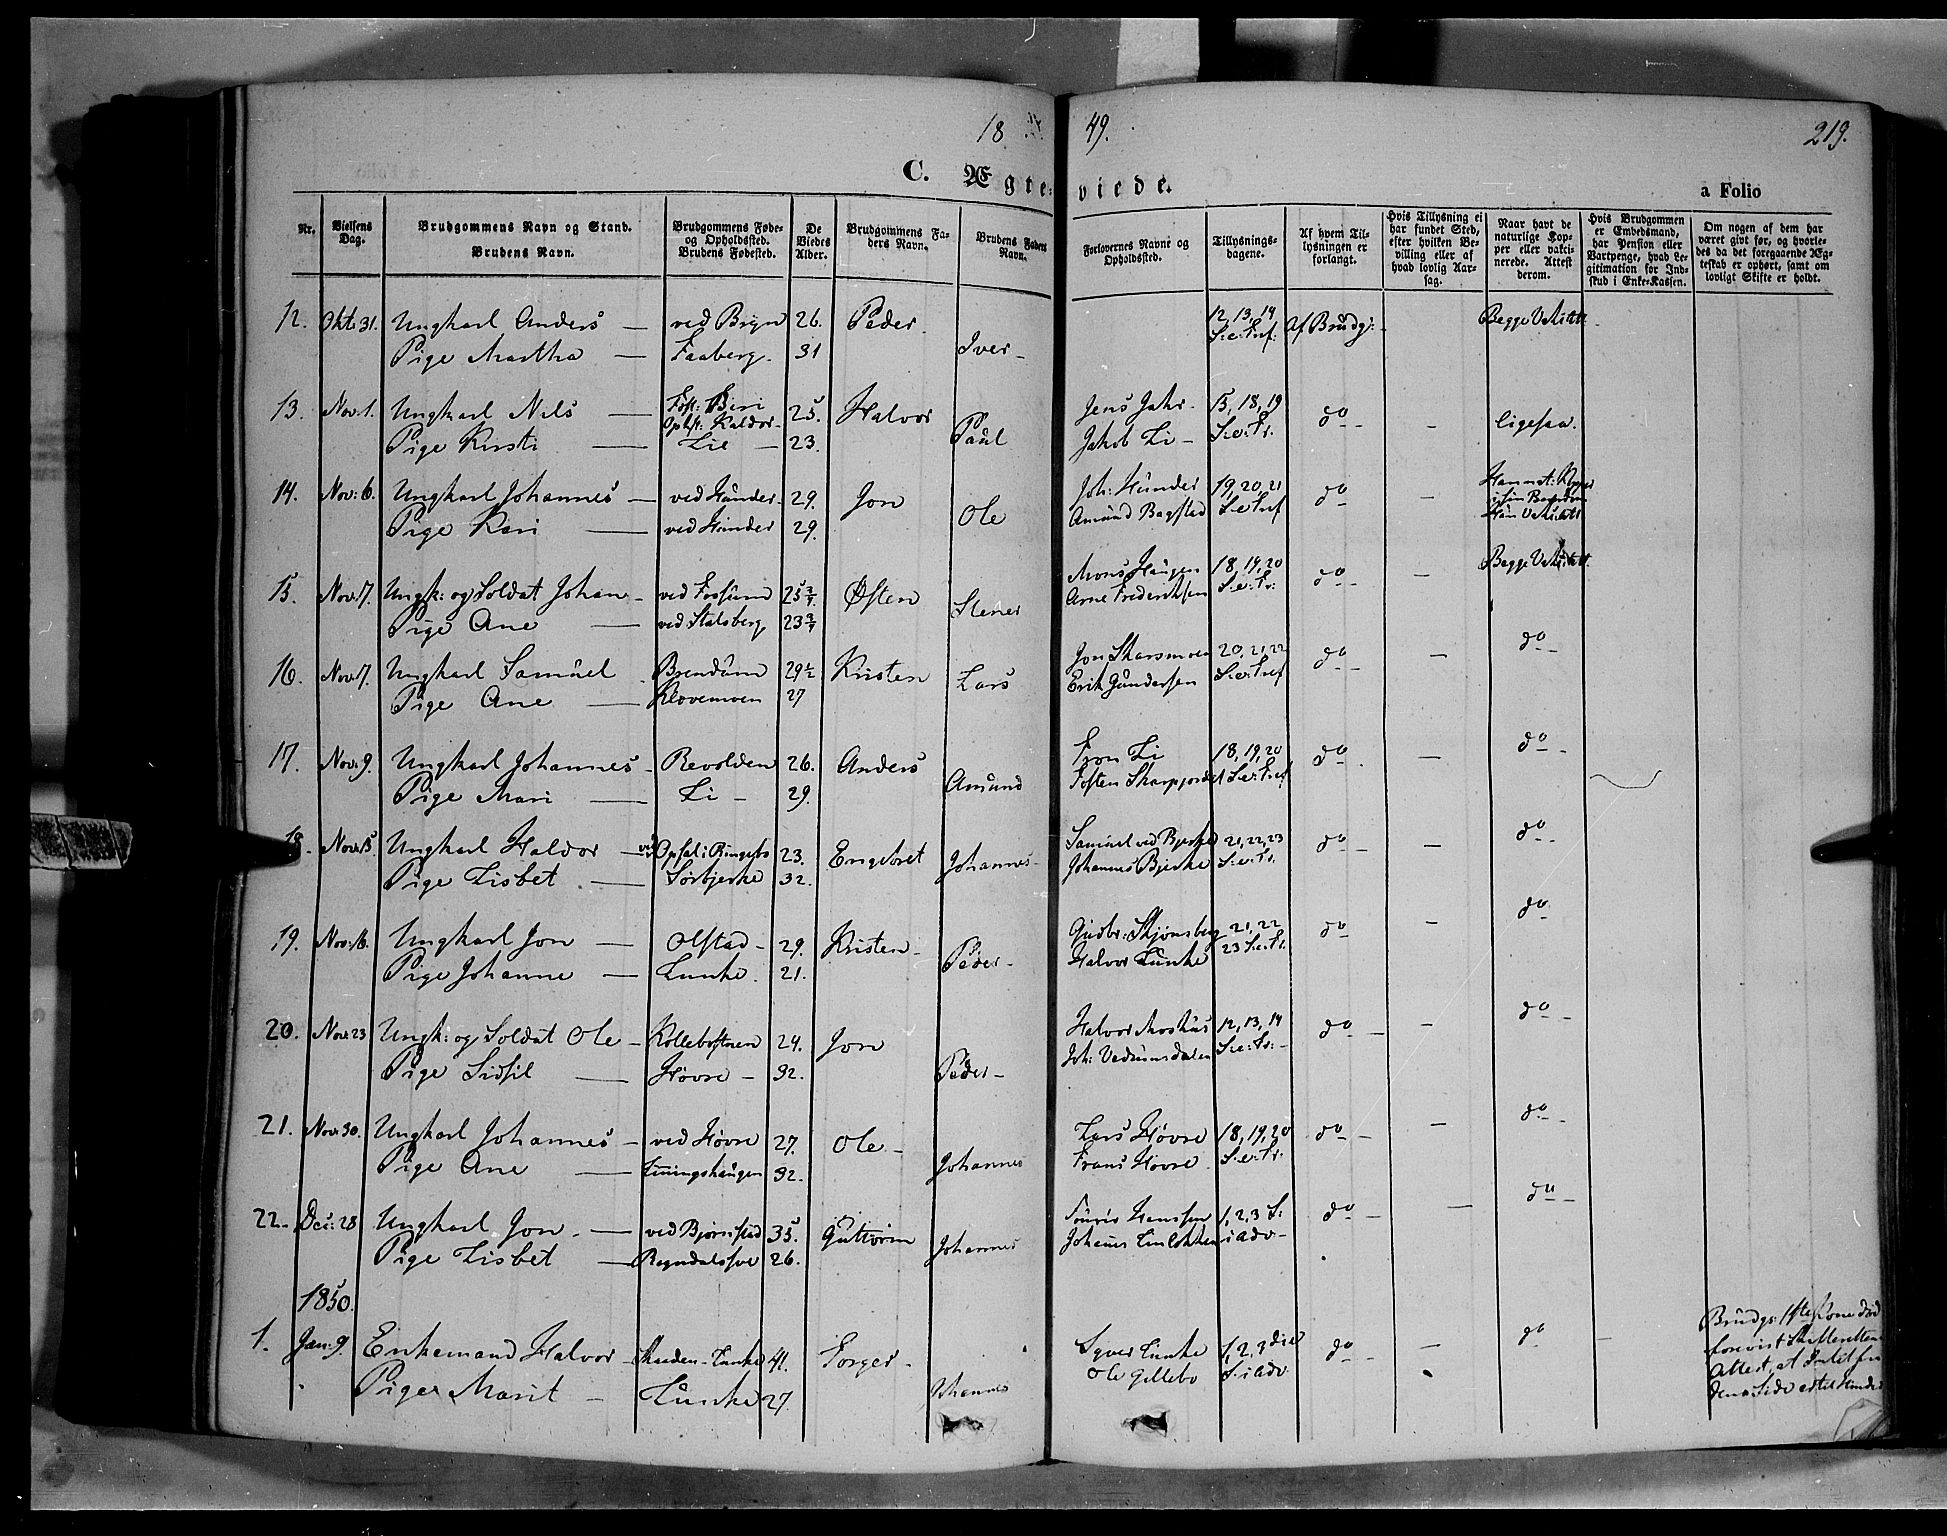 18 49.
219.
C. Ægteviede.
a Folio
Nr.
Vielsens Dag.
Brudgommens Navn og Stand.
Brudens Navn.
Brudgommens Føde- og Opholdssted.
Brudens Fødested.
De Viedes Alder.
Brudgommens Faders Navn.
Brudens Faders Navn.
Forlovernes Navne og Opholdssted.
Tillysningsdagene.
Af hvem Tillysningen er forlangt.
Hvis Tillysning ei har fundet Sted, efter hvilken Bevilling eller af hvad lovlig Aarsag.
Naar havt de naturlige Kopper eller vaktinerede. Attest derom.
Hvis Brudgommen er Embedsmand, har Pension eller Vartpenge, hvad Legitimation for Indskud i Enke-Kassen.
Om nogen af dem har været givt før, og hvorledes da det foregaaende Ægteskab er ophørt, samt om lovligt Skifte er holdt.
12. Okt: 31. Ungkarl Anders — ved Bryn 26. Peder 12, 13, 14 Af Brudg: Begge Vakt: att.
Pige Martha — Faaberg. 31 Iver - S. e. Tref:
13. Nov: 1. Ungkarl Nils — Føst: Biri 25. Halvor Jens Jahr. 15, 18, 19 do - ligesaa.
Opholdst: Kaldor
Pige Kirsti — Lie — 23. Paul Jakob Li - S. e. Tr.
14. Nov: 6. Ungkarl Johannes — ved Hunder 29. Jon Joh: Hunder 19, 20, 21 do -
Pige Kari — ved Hunder 29. Ole Amund Bagstad S. e. Tref
15. Nov: 7. Ungk: og Soldat Johan - ved Fossum 25 Østen Mons Haugen 18, 19, 20 do - Begge Vakt: att.
Pige Ane — ved Stalsberg 23 Stener Arne Frederiksen S. e. Tr:
16. Nov: 7. Ungkarl Samuel - Brendum 29½ Kristen Jon Skarsmoen 20, 21, 22 do - do
Pige Ane — Klovemoen 27 Lars Erik Gundersen S. e. Tref
17. Nov: 9. Ungkarl Johannes - Revolden 26. Anders Tron Li 18, 19, 20 do - do
Pige Mari — Li - 29. Amund Tosten Skarpjordet S. e. Tref
18. Nov: 15. Ungkarl Haldor — ved Opsal i Ringebo 23. Engebret Samuel ved Bjerke 21, 22, 23 do - do
Pige Lisbet — Sørbjerke 32. Johannes - Johannes Bjerke S. e. Tr.
19. Nov: 16. Ungkarl Jon — Olstad - 29. Kristen - Gudbr: Skjønsberg 21, 22 do - do
Pige Johanne — Lunke. 21. Peder - Halvor Lunke 23 S. e. Tr.
20. Nov: 23 Ungk: og Soldat Ole - Kollebøstuen 24. Jon Halvor Moshus 12, 13, 14 do - do
Pige Sidsil — Høvre - 32. Peder - Joh: Vedumsdalen S. e. Tr:
21. Nov: 30. Ungkarl Johannes - ved Høvre 27. Ole - Lars Høvre 18, 19, 20 do - do
Pige Ane — Linningshaugen 32. Johannes Frans Høvre S. e. Tr.
22. Des: 28 Ungkarl Jon — ved Bjørnstad 35. Guttorm Hanssen 1, 2, 3 S: do - do
Pige Lisbet — 26. Johannes Johannes i adv
1850.
1. Jan: 9. Enkemand Halvor - Lunke 41. Torger - Syver Lunke 1, 2, 3die do - do - Brudgs: 1ste Kone død
Pige Marit - Lunke 27. Johannes Ole Gillebo S. i adv forevist Skifterettens
Attest, at Intet fra
dens Side er til Hinder